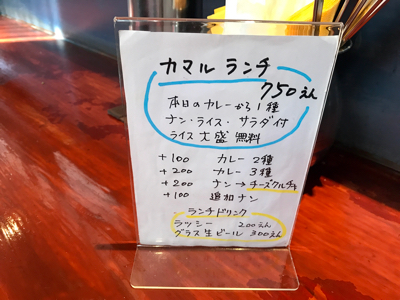 カマル ランチ
750えん
本日のカレーから1種
ナン・ライス・サラダ付
ライス大盛無料
+100 カレー2種
+200 カレー3種
+200 ナン→チーズクルチャ
+100 追加ナン
ランチドリンク
ラッシー 200えん
グラス生ビール 300えん